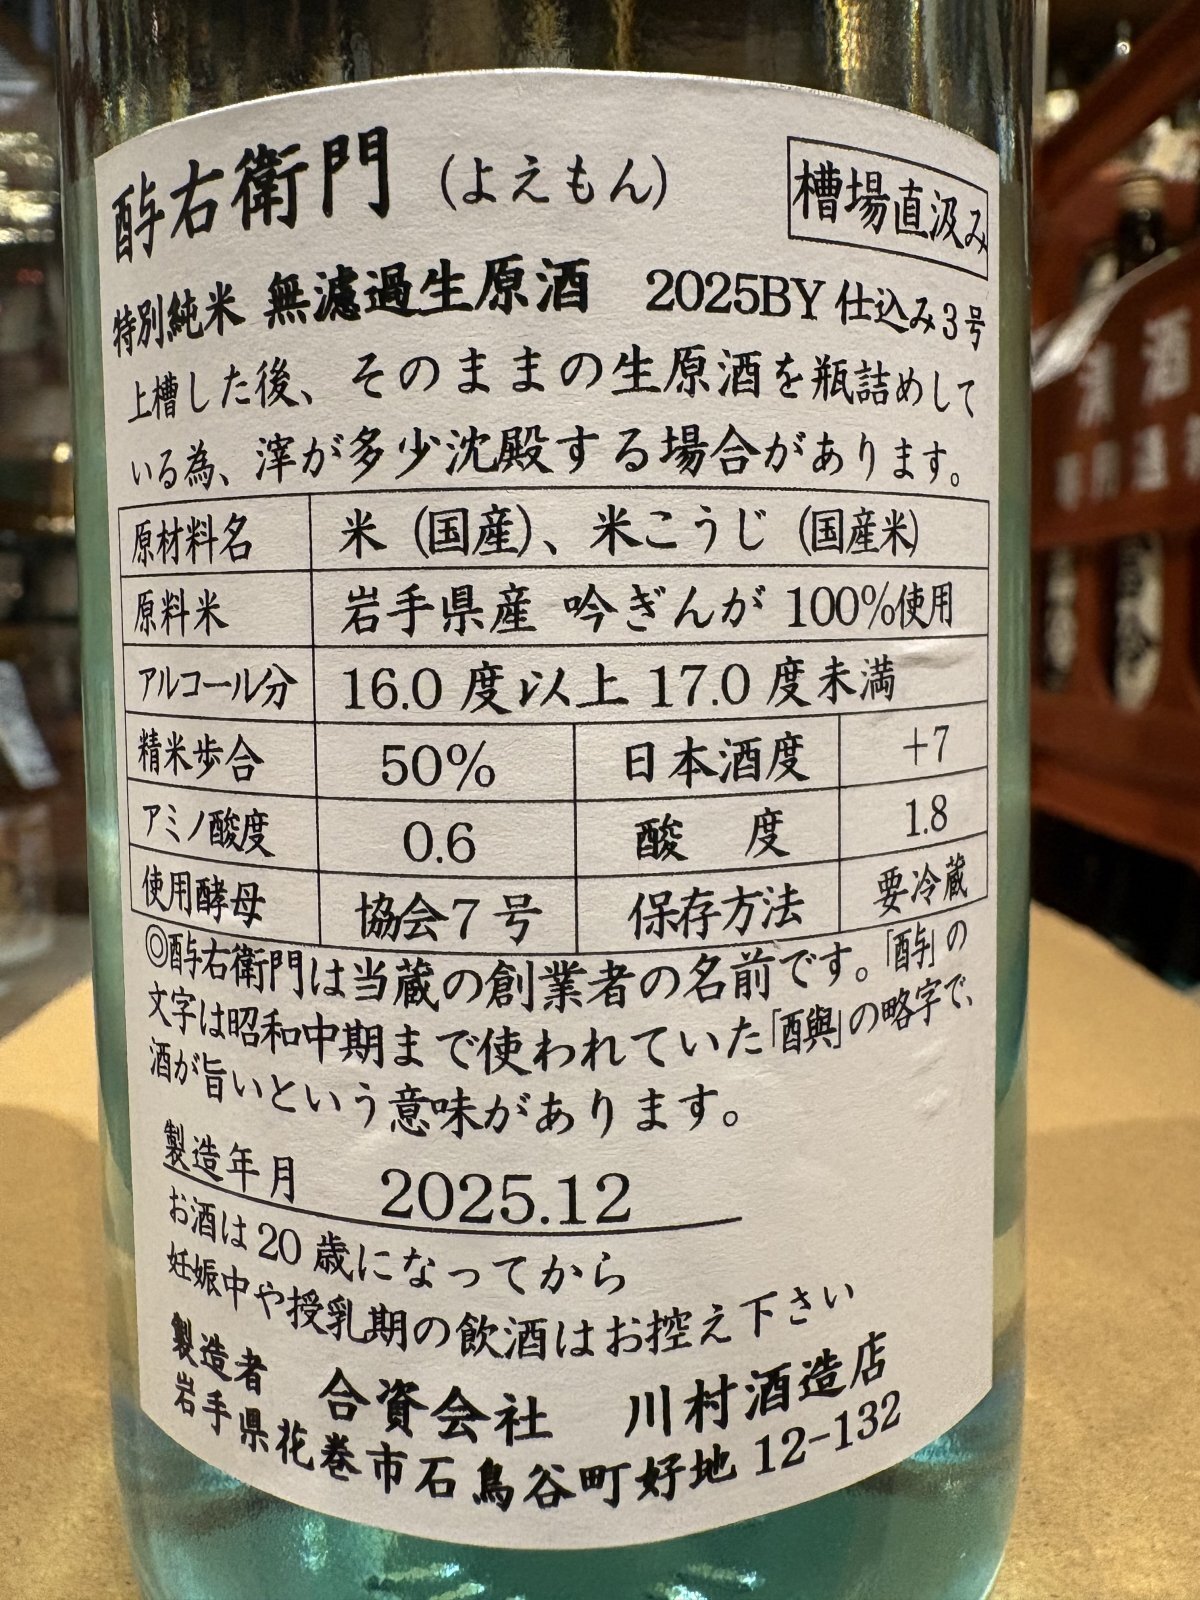 酉与右衛門 (よえもん) 槽場直汲み
特別純米 無濾過生原酒 2025BY 仕込み3号
上槽した後、そのままの生原酒を瓶詰めして
いる為、滓が多少沈殿する場合があります。
原材料名 米（国産）、米こうじ（国産米）
原料米 岩手県産 吟ぎんが 100%使用
アルコール分 16.0 度以上 17.0 度未満
精米歩合 50% 日本酒度 +7
アミノ酸度 0.6 酸 度 1.8
使用酵母 協会7号 保存方法 要冷蔵
◎酉与右衛門は当蔵の創業者の名前です。「酉与」の
文字は昭和中期まで使われていた「酉與」の略字で、
酒が旨いという意味があります。
製造年月 2025.12
お酒は20歳になってから
妊娠中や授乳期の飲酒はお控え下さい
製造者 合資会社 川村酒造店
岩手県花巻市石鳥谷町好地12-132
清酒